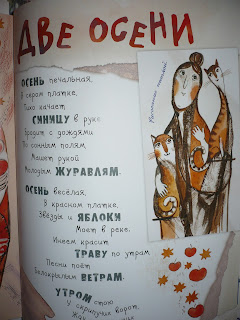 ДВЕ ОСЕНИ
ОСЕНЬ печальная,
В сером платке,
Тихо качает
СИНИЦУ в руке
Бродит с дождями
По сонным полям,
Машет рукой
Молодым ЖУРАВЛЯМ.
ОСЕНЬ весёлая,
В красном платке,
Звёзды и ЯБЛОКИ
Моет в реке,
Инеем красит
ТРАВУ по утрам
Песни поёт
Белокрылым ВЕТРАМ.
УТРОМ стою
У скрипучих ворот,